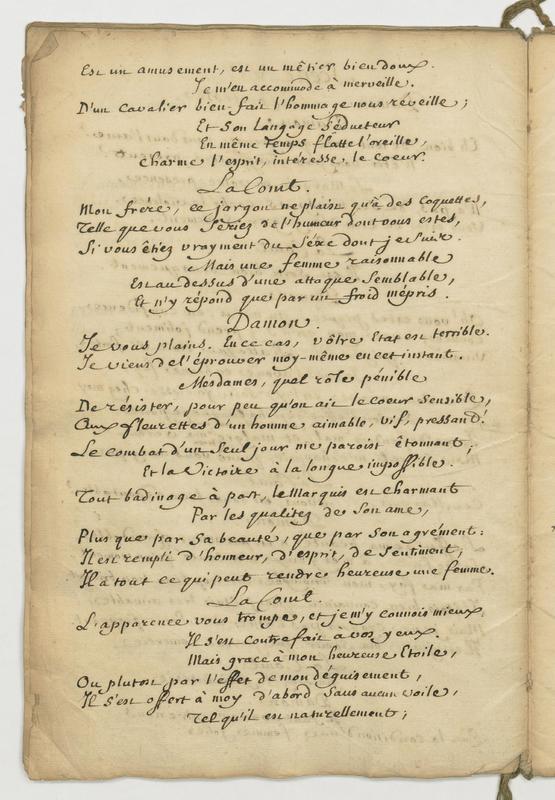 Est un amusement, est un mêtier bien doux.
Je m'en accommode à merveille.
D'un Cavalier bien-fait l'hommage nous réveille ;
Et son Langage Séducteur
En même temps flatte l'oreille,
Charme l'esprit, intéresse le coeur.
La Comt.
Mon frére, ce jargon ne plaist qu'à des Coquettes,
Telle que vous Seriez de l'humeur dont vous estes,
Si vous êtiez vrayment du Séxe dont je Suis.
Mais une femme raisonnable
Est au dessus d'une attaque Semblable,
Et n'y répond que par un froid mépris.
Damon.
Je vous plains. En ce cas, vôtre Etat est terrible.
Je viens de l'éprouver moy-même en cet instant.
Mesdames, quel rôle pénible
De résister, pour peu qu'on ait le coeur Sensible,
Aux fleurettes d'un homme aimable, vif, pressant!
Le combat d'un Seul jour me paroist êtonnant ;
Et la Victoire à la longue impossible.
Tout badinage à part, le Marquis est charmant
Par les qualitez de Son ame,
Plus que par Sa beauté, que par Son agrément :
Il est rempli d'honneur, d'esprit, de Sentiment ;
Il a tout ce qui peut rendre heureuse une femme.
La Comt.
L'apparence vous trompe, et je m'y connois mieux.
Il s'est contrefait à vos yeux.
Mais grace à mon heureuse Etoile,
Ou plutost par l'effet de mon déguisement,
Il s'est offert à moy d'abord Sans aucun voile,
Tel qu'il est naturellement ;